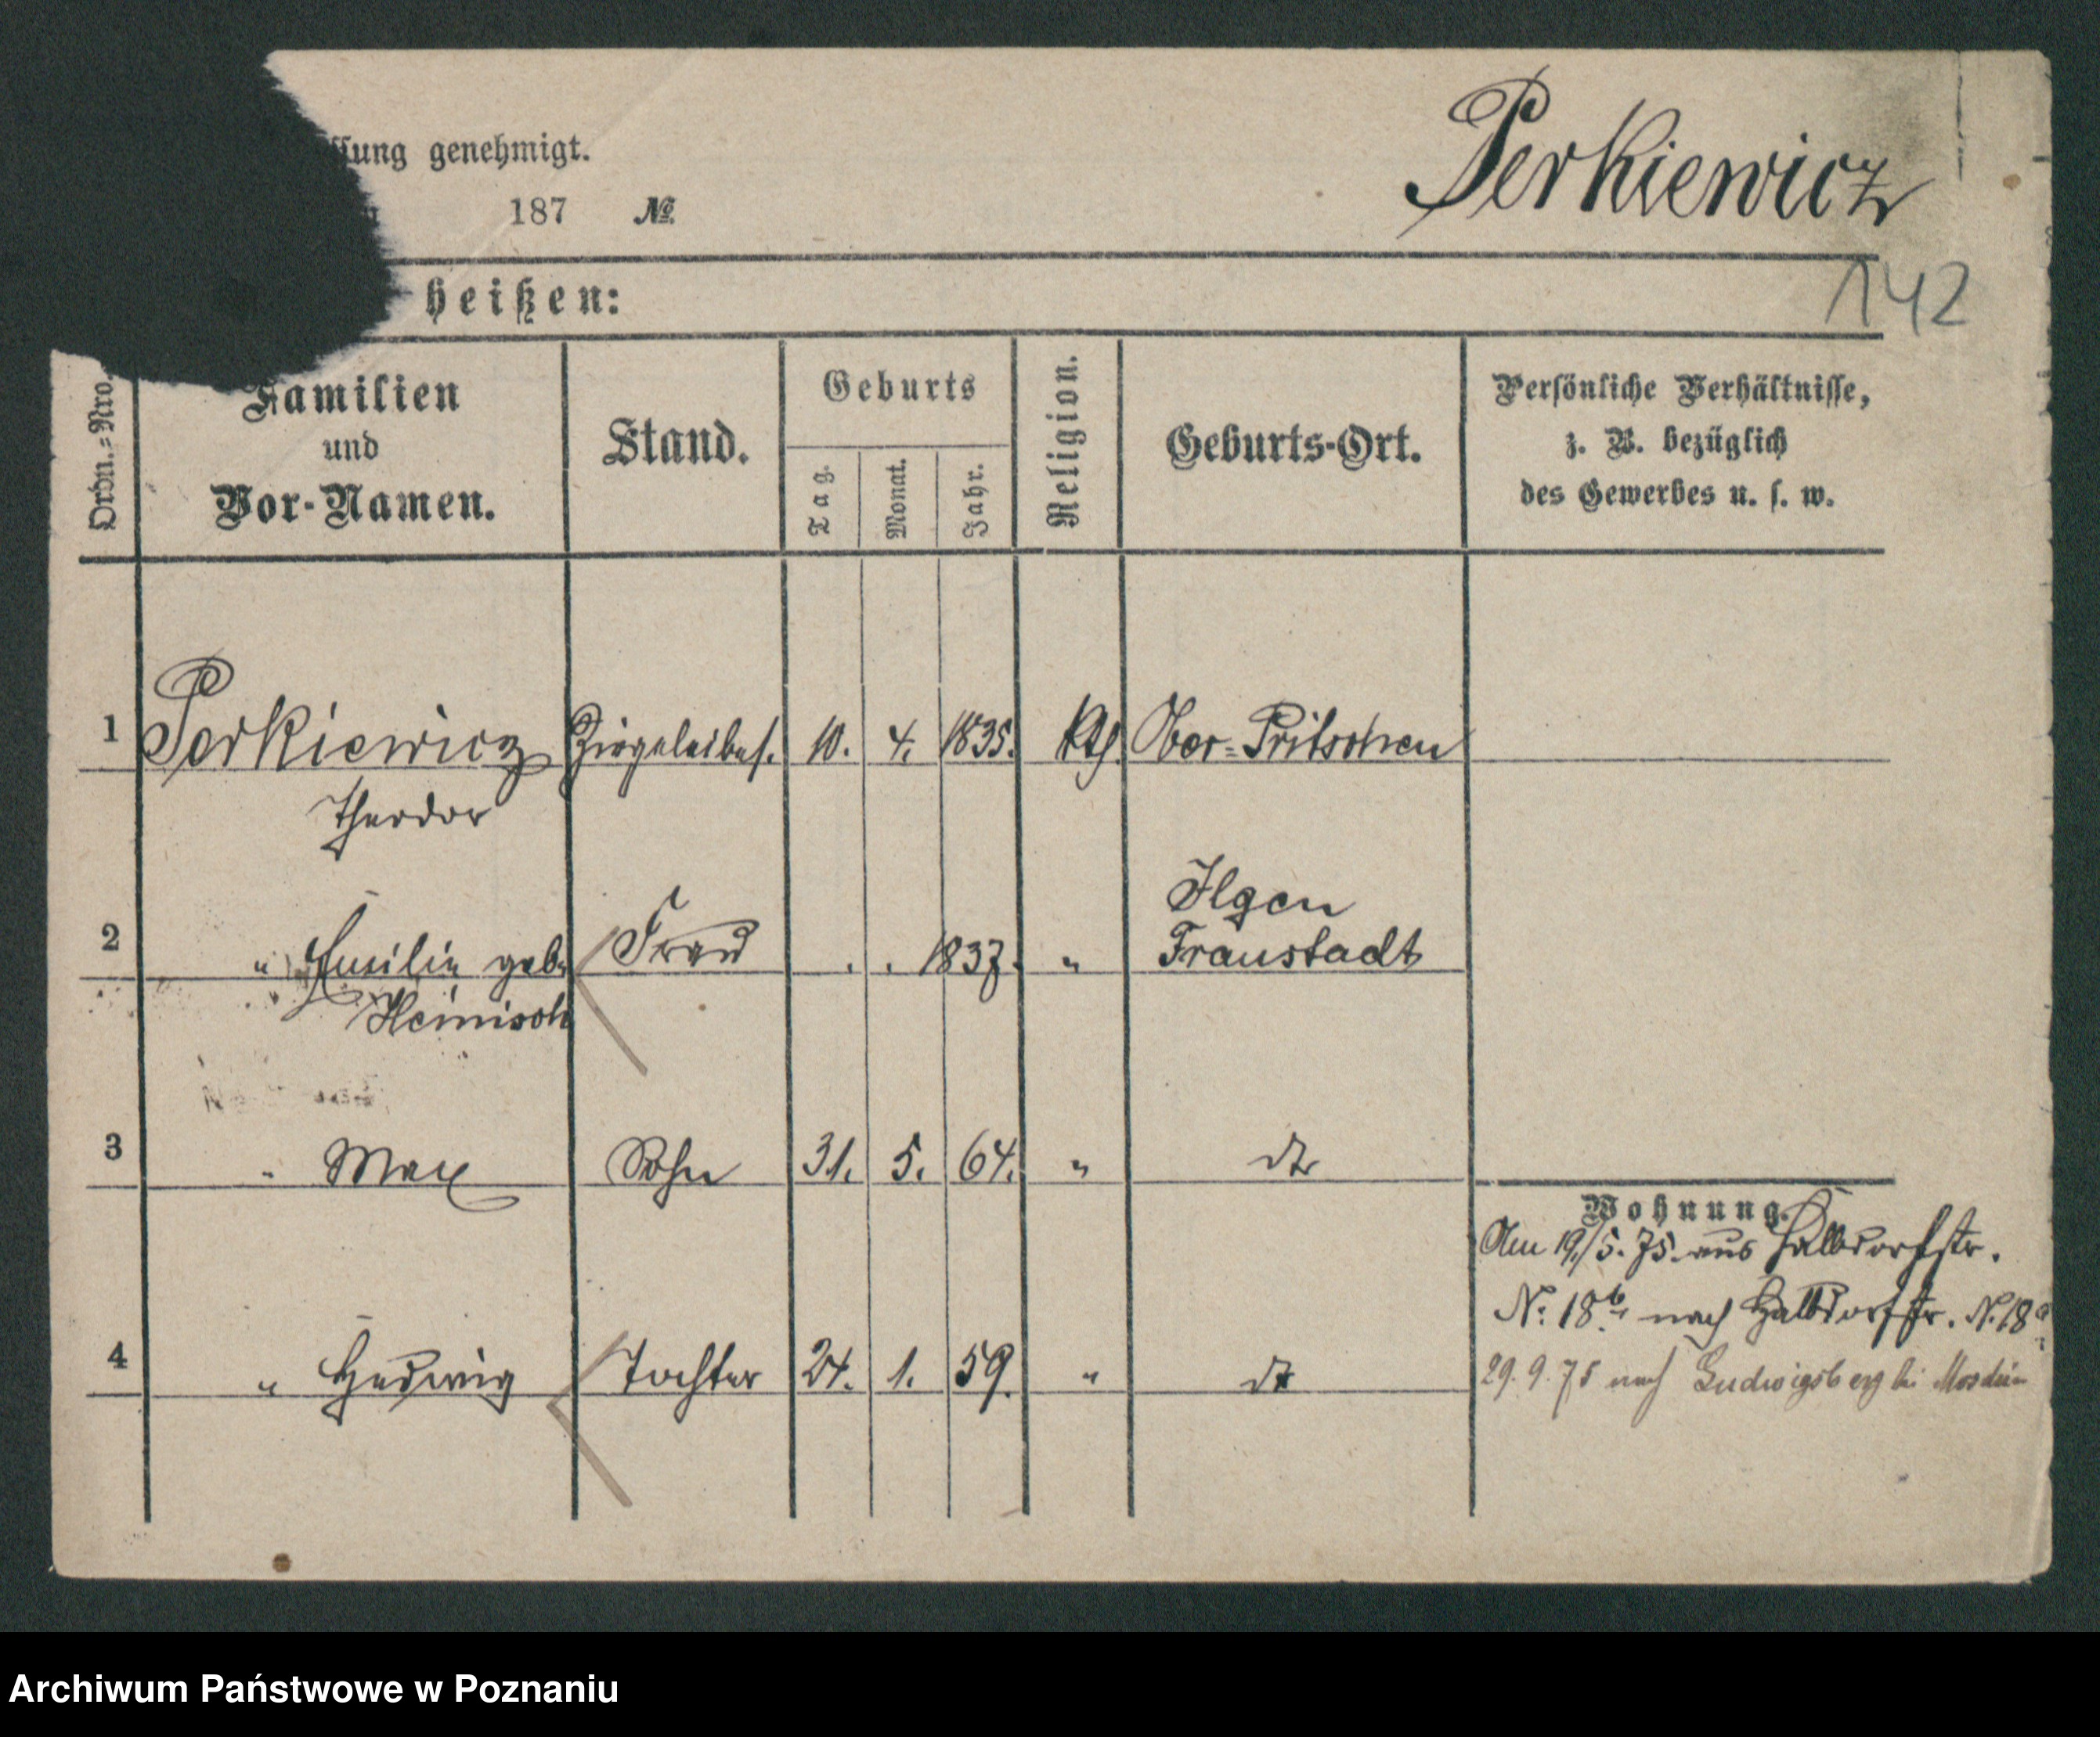 Perkiewicz
ssung genehmigt.
187 №
142
heißen:
Ordn.=Nro.
Familien
und
Vor-Namen.
Stand.
Geburts
Tag.
Monat.
Jahr.
Religion.
Geburts-Ort.
Persönliche Verhältnisse,
z. B. bezüglich
des Gewerbes u. s. w.
1 Perkiewicz Ziegeleibes. 10. 4. 1835. kth. Ober-Pritschen
Theodor
Ilgen
2 " Emilie geb. Frau . . 1837. " Fraustadt
Heinisch
3 " Max Sohn 31. 5. 64. " dto
Wohnung.
Am 19/5. 75 aus Halbdorfstr.
No. 18b nach Halbdorfstr. N. 18a
4 " Hedwig Tochter 24. 1. 59. " dto
29. 9. 75 nach Ludwigsberg bei Moschin
Archiwum Państwowe w Poznaniu